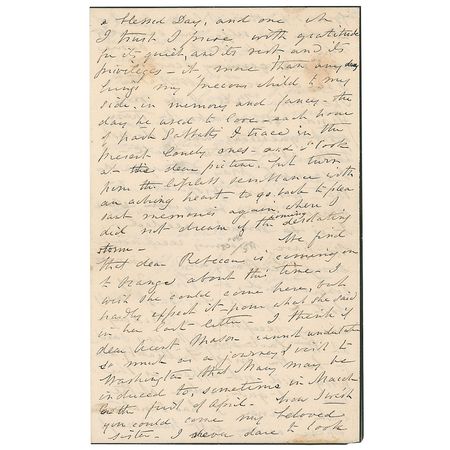 a blessed Day, and one
I trust I prize with gratitude
for it - quiet, and its rest and its
privileges - it more than any day
brings my precious child to my
side. in memory and fancy - the
day he used to love - each hour
of past Sabbaths I trace in the
present lonely ones - and I look
at the dear picture. but turn
from the lifeless semblance with
an aching heart - to go back to plea
sant memories again, when I
did not dream of the coming desolating
storm -
We find
that dear Rebecca is coming on
to Orange about this time - I
wish she could come here, but
hardly expect it - from what she said
in her last letter I think if
dear Aunt Mason cannot undertake
so much as a journey & visit to
Washington - that Mary may be
induced to, sometime in March
or the first of April. how I wish
you could come my beloved
sister - I never dare to look